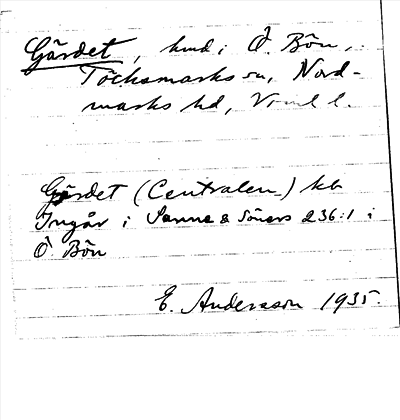 Gärdet, hmd i Ö. Bön,
Töcksmarks sn, Nord-
marks hd, Vrml l.
Gärdet (Centralen) kb
Ingår i Sanna & Söners 236:1 i
Ö Bön
E. Andersson 1935.